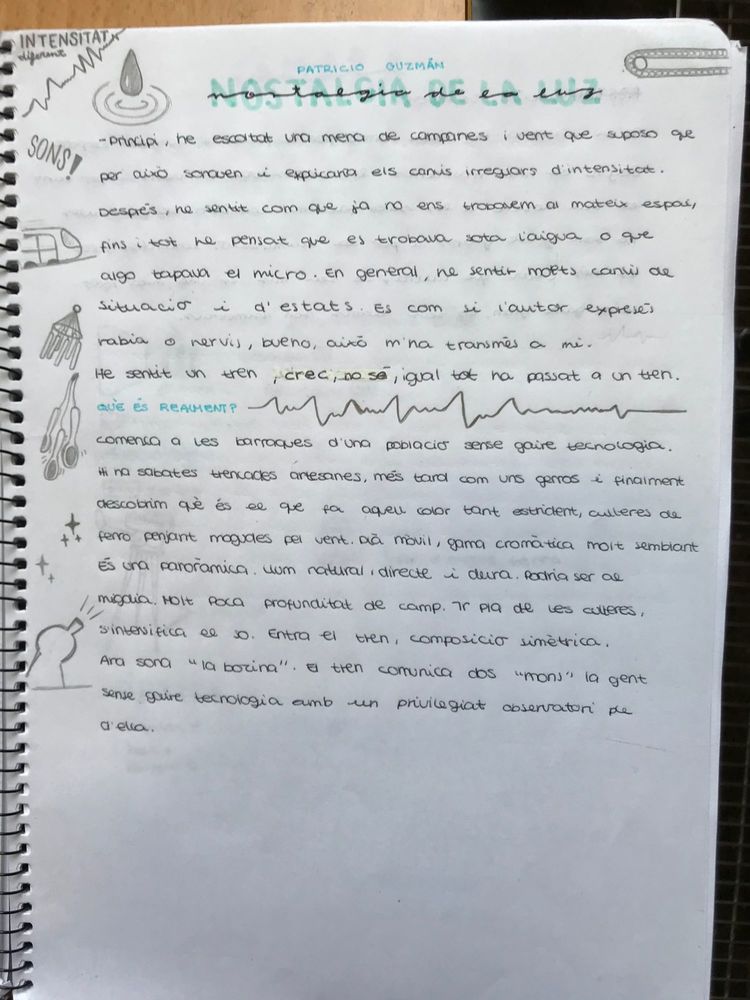 INTENSITAT
diferent
PATRICIO GUZMÁN
NOSTALGIA DE LA LUZ
nostalgia de la luz
SONS!
-Principi, he escoltat una mena de campanes i vent que suposo que
per això sonaven i explicaria els canvis irregulars d'intensitat.
Després, he sentit com que ja no ens trobavem al mateix espai,
fins i tot he pensat que es trobava sota l'aigua o que
algo tapava el micro. En general, he sentit molts canvis de
situació i d'estats. Es com si l'autor expresés
rabia o nervis, bueno, això m'ha transmès a mi.
He sentit un tren, crec, no sé, igual tot ha passat a un tren.
QUÈ ÉS REALMENT?
comença a les barraques d'una població sense gaire tecnologia.
Hi ha sabates trencades artesanes, més tard com uns gerros i finalment
descobrim què és el que fa aquell color tant estrident, culleres de
ferro penjant mogudes pel vent. Plà mòvil, gama cromàtica molt semblant
És una panoràmica. Llum natural, directe i dura. Podria ser de
migdia. Molt poca profunditat de camp. 1r pla de les culleres,
s'intensifica el so. Entra el tren, composició simètrica.
Ara sona "la bozina". El tren comunica dos "mons" la gent
sense gaire tecnologia amb un privilegiat observatori de
d'ella.